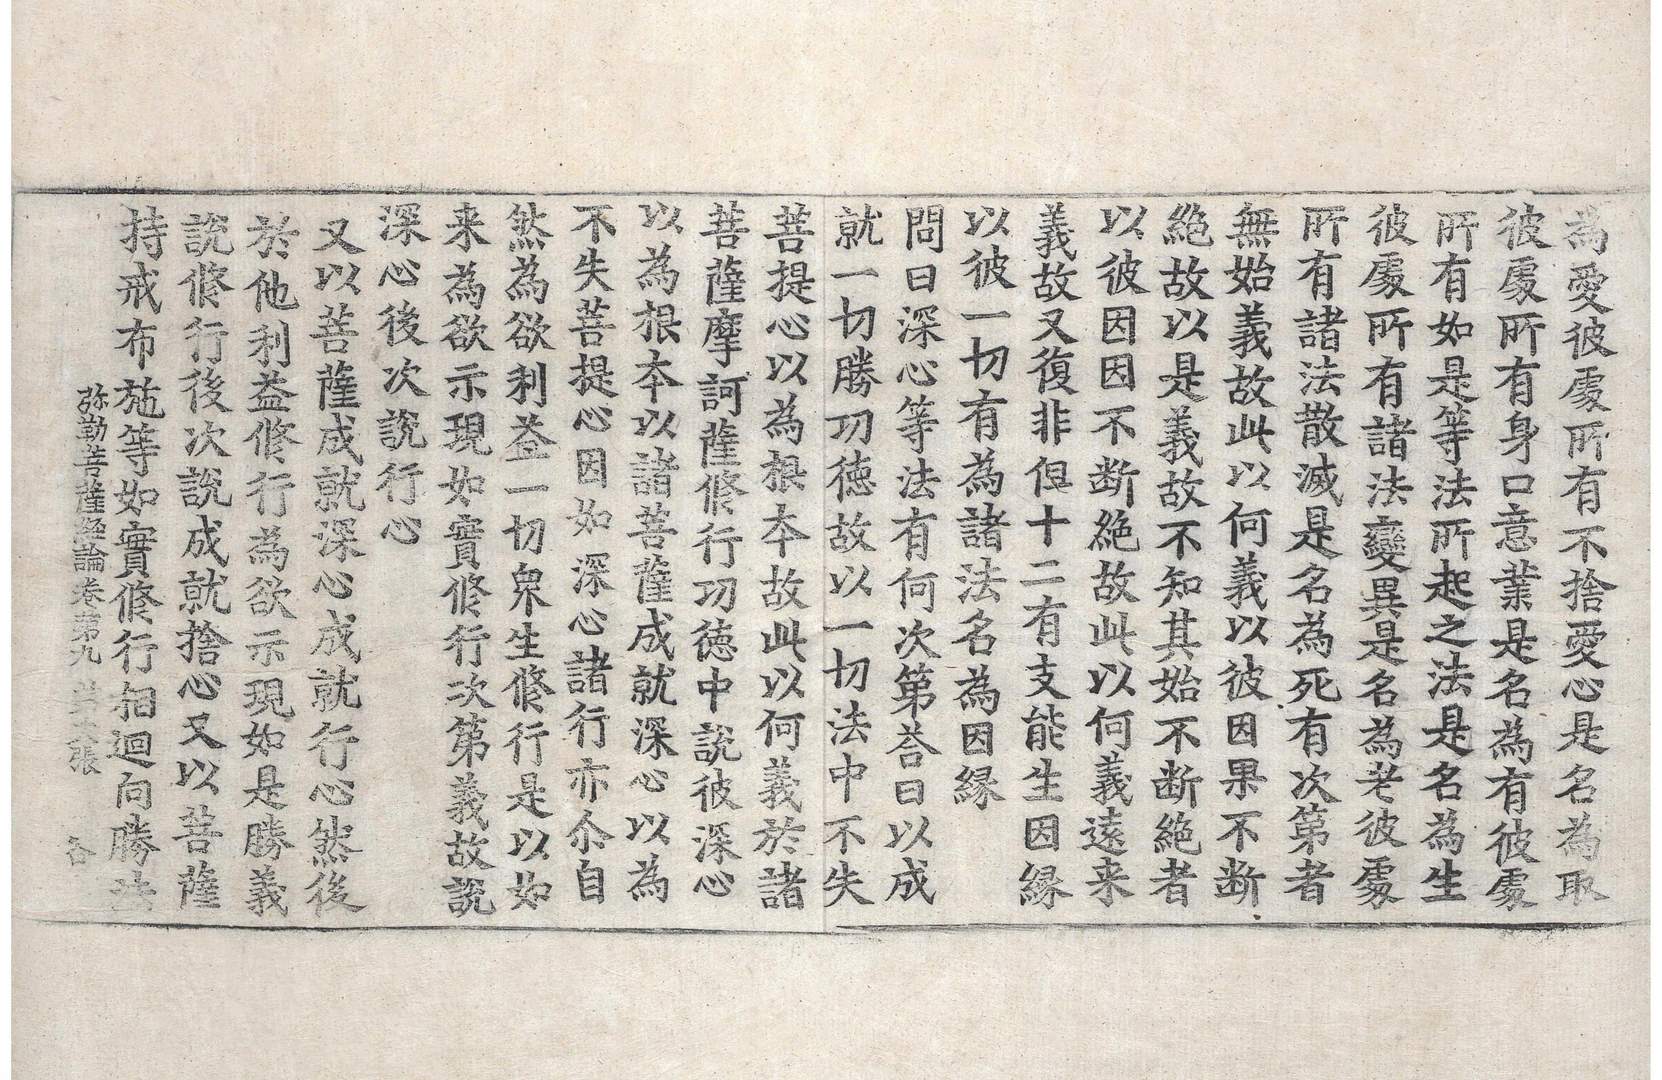 為愛彼處所有不捨愛心是名為取
彼處所有身口意業是名為有彼處
所有如是等法所起之法是名為生
彼處所有諸法變異是名為老彼處
所有諸法散滅是名為死有次第者
無始義故此以何義以彼因果不断
絶故以是義故不知其始不断絶者
以彼因因不断絶故此以何義遠来
義故又復非但十二有支能生因縁
以彼一切有為諸法名為因縁
問曰深心等法有何次第荅曰以成
就一切勝功徳故以一切法中不失
菩提心以為根本故此以何義於諸
菩薩摩訶薩修行功徳中說彼深心
以為根本以諸菩薩成就深心以為
不失菩提心因如深心諸行亦尒自
然為欲利益一切衆生修行是以如
来為欲示現如實修行次第義故說
深心後次說行心
又以菩薩成就深心成就行心然後
於他利益修行為欲示現如是勝義
說修行後次說成就捨心又以菩薩
持戒布施等如實修行相迴向勝法
弥勒菩薩經論卷第九 張 各